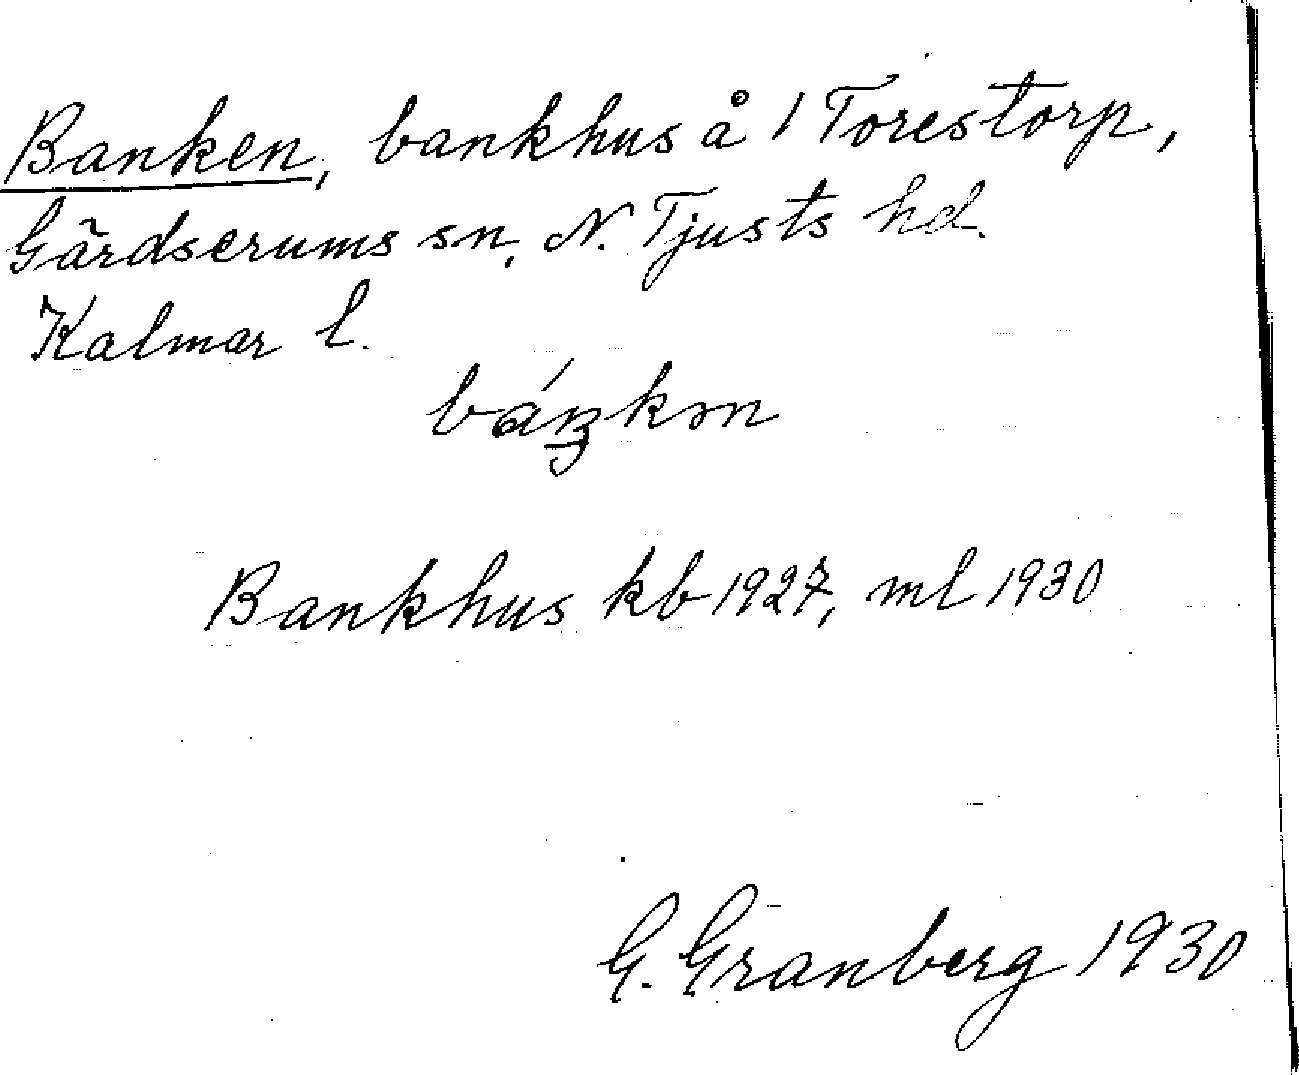 Banken, bankhus å 1 Torestorp,
Gärdserums sn, N. Tjusts hd.
Kalmar l.
báŋkən
Bankhus kb 1927, ml 1930
G. Granberg 1930